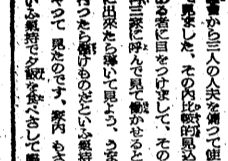 會から三人の人夫を傭つて使
見ました、その内比較的見込
ある者に目をつけまして、その
三家に呼んで見て働かせると
に出來たら導いて見よう、う
行つたら儲けものだといふ氣持
やつて見たのです。案内も
いふ氣持で夕飯を食べさして